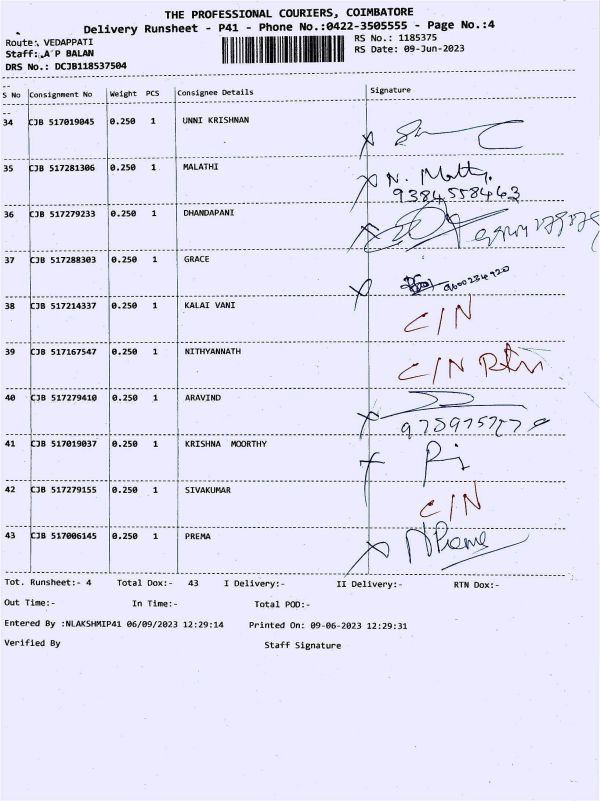 THE PROFESSIONAL COURIERS, COIMBATORE
Delivery Runsheet - P41 - Phone No.:0422-3505555 - Page No.:4
Route: VEDAPPATI
RS No.: 1185375
Staff: A P BALAN
RS Date: 09-Jun-2023
DRS No.: DCJB118537504
S No Consignment No Weight PCS Consignee Details Signature
34 CJB 517019045 0.250 1 UNNI KRISHNAN
35 CJB 517281306 0.250 1 MALATHI N.
9384558463
36 CJB 517279233 0.250 1 DHANDAPANI
37 CJB 517288303 0.250 1 GRACE
38 CJB 517214337 0.250 1 KALAI VANI C/N
39 CJB 517167547 0.250 1 NITHYANNATH C/N Rtn
40 CJB 517279410 0.250 1 ARAVIND
41 CJB 517019037 0.250 1 KRISHNA MOORTHY
42 CJB 517279155 0.250 1 SIVAKUMAR C/N
43 CJB 517006145 0.250 1 PREMA Prema
Tot. Runsheet:- 4 Total Dox:- 43 I Delivery:- II Delivery:- RTN Dox:-
Out Time:- In Time:- Total POD:-
Entered By :NLAKSHMIP41 06/09/2023 12:29:14 Printed On: 09-06-2023 12:29:31
Verified By Staff Signature